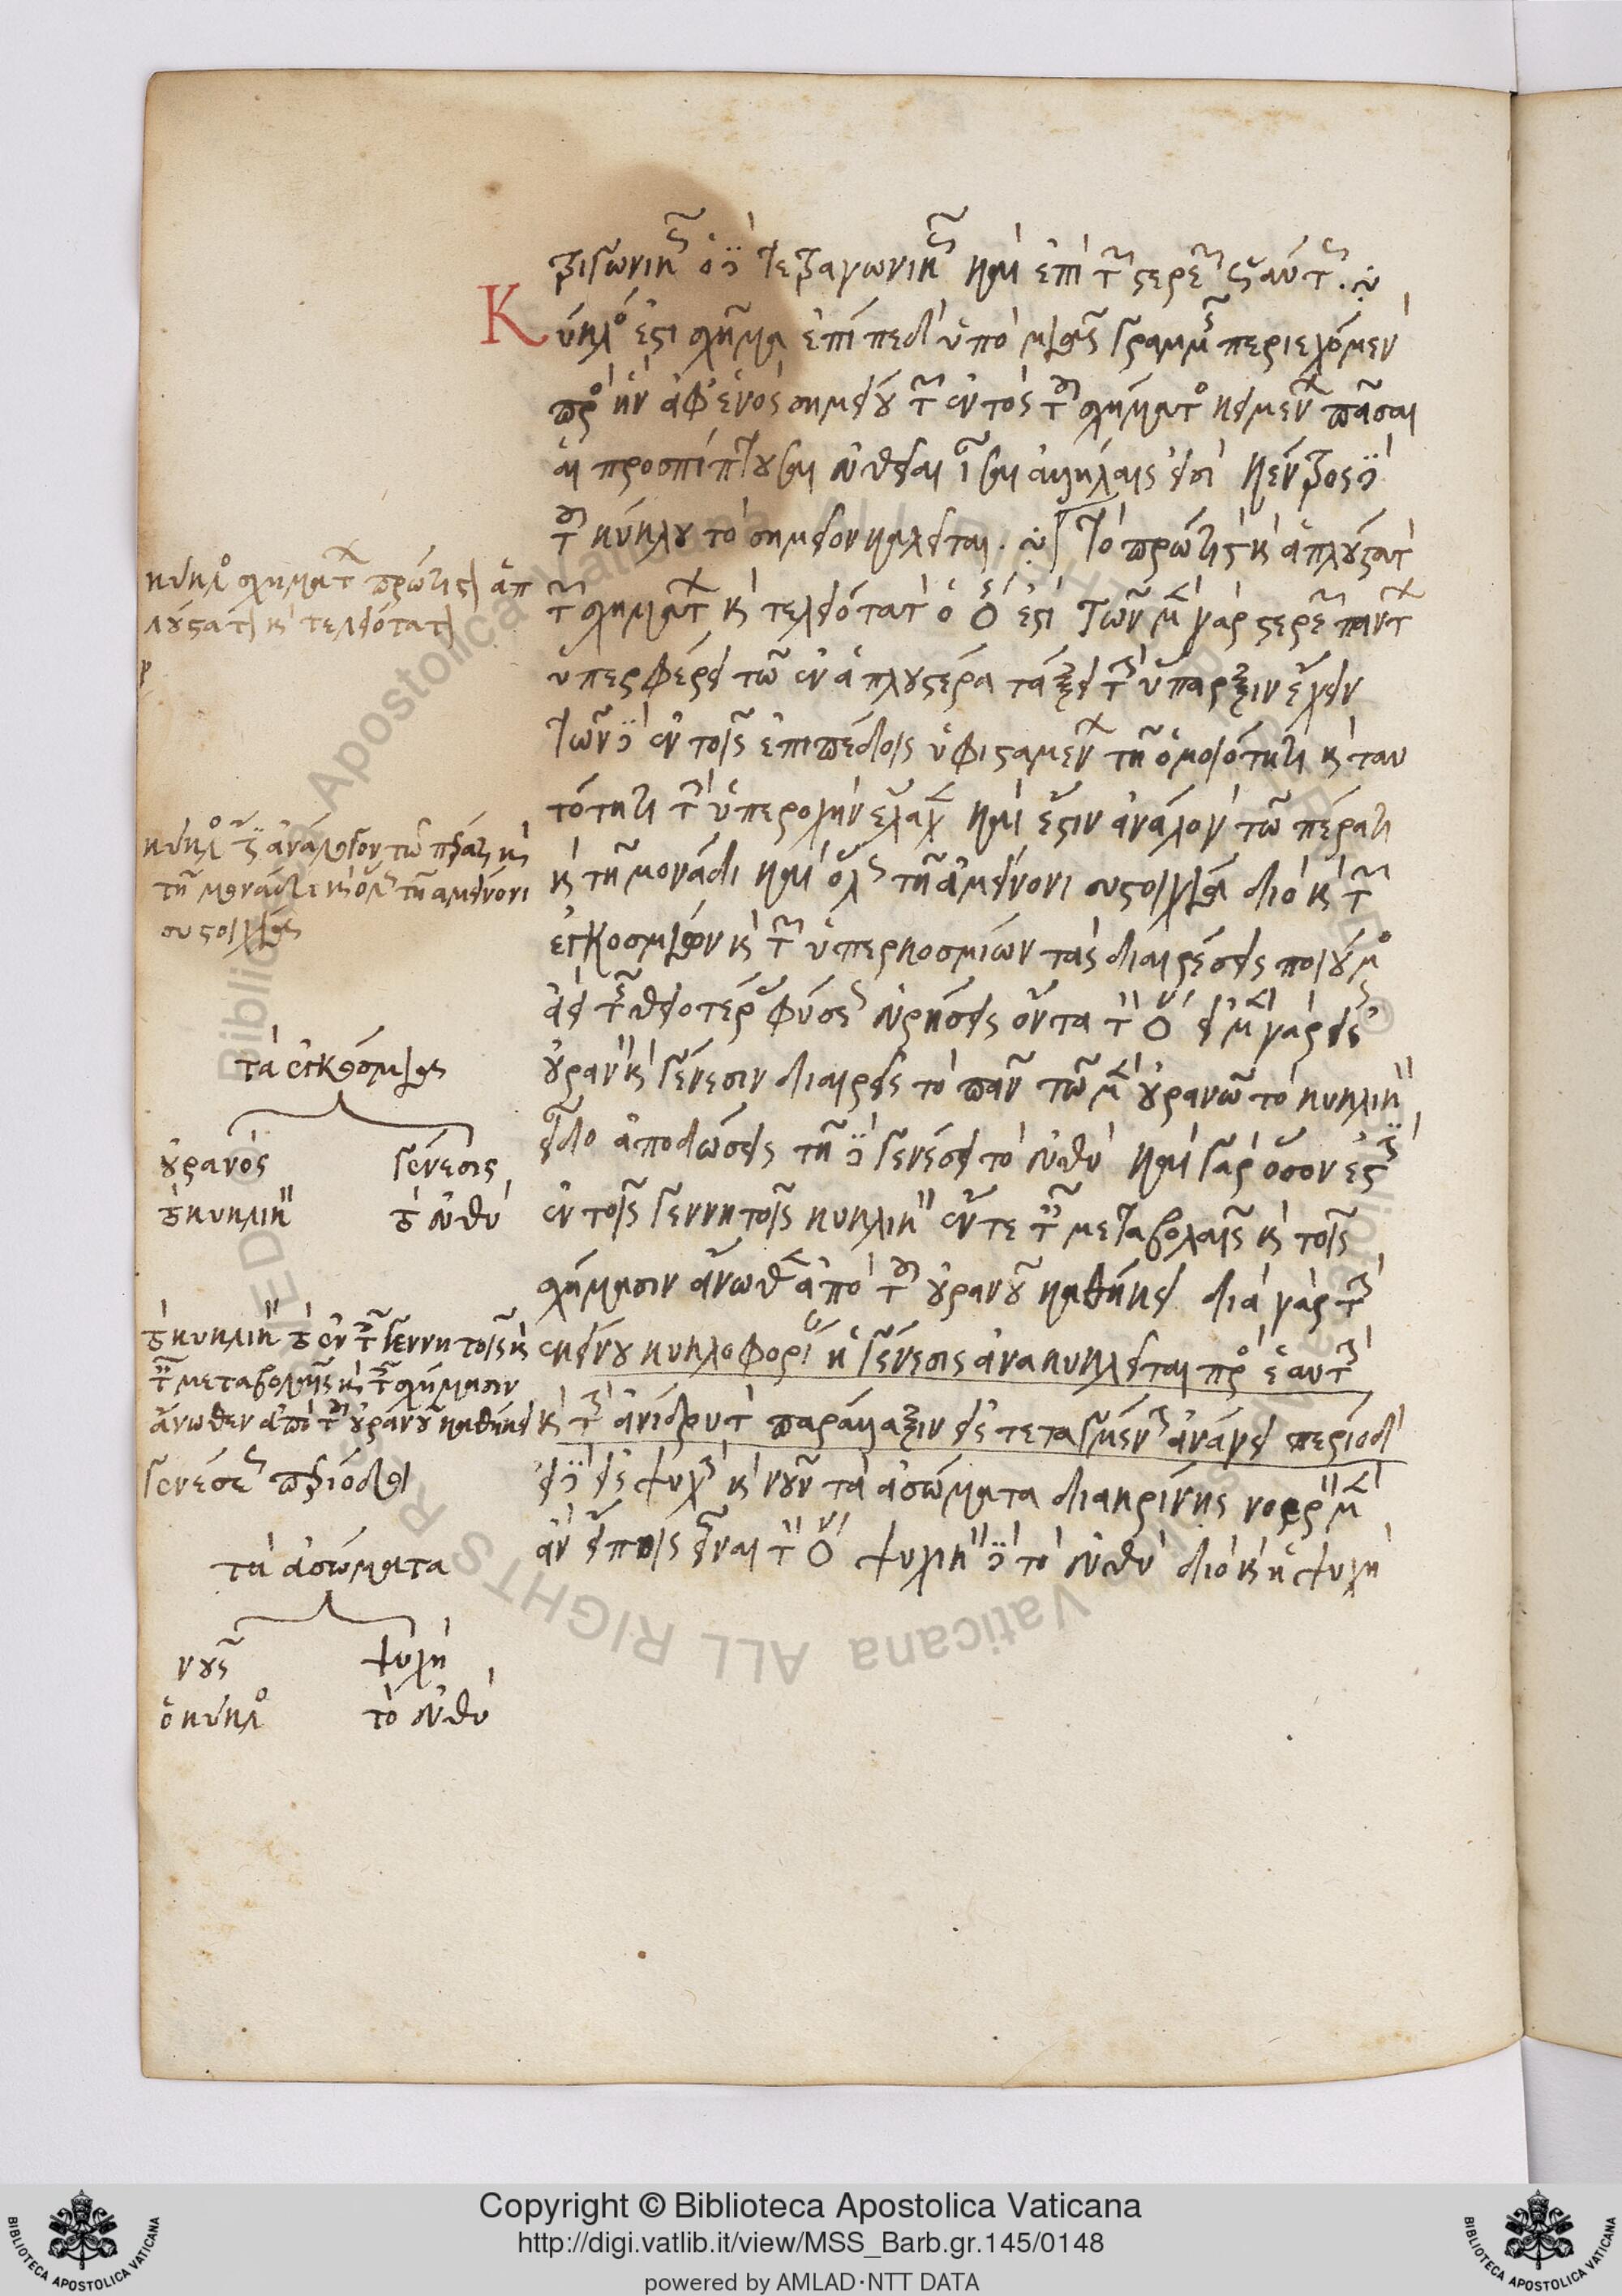 τριγωνικῆς ὁ δὲ τετραγωνικῆς καὶ ἐπὶ τῶν στερεῶν ὡσαύτως.
Κύκλος ἐστὶ σχῆμα ἐπίπεδον ὑπὸ μιᾶς γραμμῆς περιεχόμενον
πρὸς ἣν ἀφ' ἑνὸς σημείου τῶν ἐντὸς τοῦ σχήματος κειμένων πᾶσαι
αἱ προσπίπτουσαι εὐθεῖαι ἴσαι ἀλλήλαις εἰσὶ κέντρον δὲ
τοῦ κύκλου τὸ σημεῖον καλεῖται. Τὸ πρώτιστον καὶ ἁπλούστατον
τῶν σχημάτων καὶ τελειότατον ὁ κύκλος ἐστί τῶν μὲν γὰρ στερεῶν πάντων
ὑπερφέρει τῷ ἐν ἁπλουστέρᾳ τάξει τὴν ὕπαρξιν ἔχειν
τῶν δὲ ἐν τοῖς ἐπιπέδοις ὑφισταμένων τῇ ὁμοιότητι καὶ ταυ
τότητι τὴν ὑπεροχὴν ἔλαχεν καὶ ἔστιν ἀνάλογον τῷ πέρατι
καὶ τῇ μονάδι καὶ ὅλως τῇ ἀμείνονι συστοιχίᾳ διὸ καὶ τῶν
ἐγκοσμίων καὶ τῶν ὑπερκοσμίων τὰς διαιρέσεις ποιούμενος
ἀεὶ τῆς θειοτέρας φύσεως εὑρήσεις ὄντα τὸν κύκλον εἰ μὲν γὰρ εἰς
οὐρανὸν καὶ γένεσιν διαιρεῖς τὸ πᾶν τῷ μὲν οὐρανῷ τὸ κυκλικὸν
εἶδος ἀποδώσεις τῇ δὲ γενέσει τὸ εὐθύ καὶ γὰρ ὅσον ἐστὶν
ἐν τοῖς γεννητοῖς κυκλικὸν ἔν τε ταῖς μεταβολαῖς καὶ τοῖς
σχήμασιν ἄνωθεν ἀπὸ τοῦ οὐρανοῦ καθήκει διὰ γὰρ τὴν
ἐκείνου κυκλοφορίαν ἡ γένεσις ἀνακυκλεῖται πρὸς ἑαυτὴν
καὶ τὴν ἀνίδρυτον παράλλαξιν εἰς τεταγμένην ἀνάγει περίοδον
εἰ δὲ εἰς ψυχὴν καὶ νοῦν τὰ ἀσώματα διακρίνεις νοερὸν μὲν
ἂν εἴποις εἶναι τὸν κύκλον ψυχικὸν δὲ τὸ εὐθύ διὸ καὶ ἡ ψυχὴ
κύκλος σχημάτων πρώτιστον ἁπ
λούστατον καὶ τελειότατον
κύκλος ἀνάλογον τῷ πέρατι καὶ
τῇ μονάδι καὶ ὅλως τῇ ἀμείνονι
συστοιχίᾳ
τὰ ἐγκόσμια
οὐρανός γένεσις
τὸ κυκλικὸν τὸ εὐθύ
τὸ κυκλικὸν τὸ ἐν τοῖς γεννητοῖς καὶ
ταῖς μεταβολαῖς καὶ τοῖς σχήμασιν
ἄνωθεν ἀπὸ τοῦ οὐρανοῦ καθήκει
γενέσεως περίοδοι
τὰ ἀσώματα
νοῦς ψυχή
ὁ κύκλος τὸ εὐθύ
Copyright © Biblioteca Apostolica Vaticana
http://digi.vatlib.it/view/MSS_Barb.gr.145/0148
powered by AMLAD·NTT DATA
BIBLIOTECA APOSTOLICA VATICANA
BIBLIOTECA APOSTOLICA VATICANA